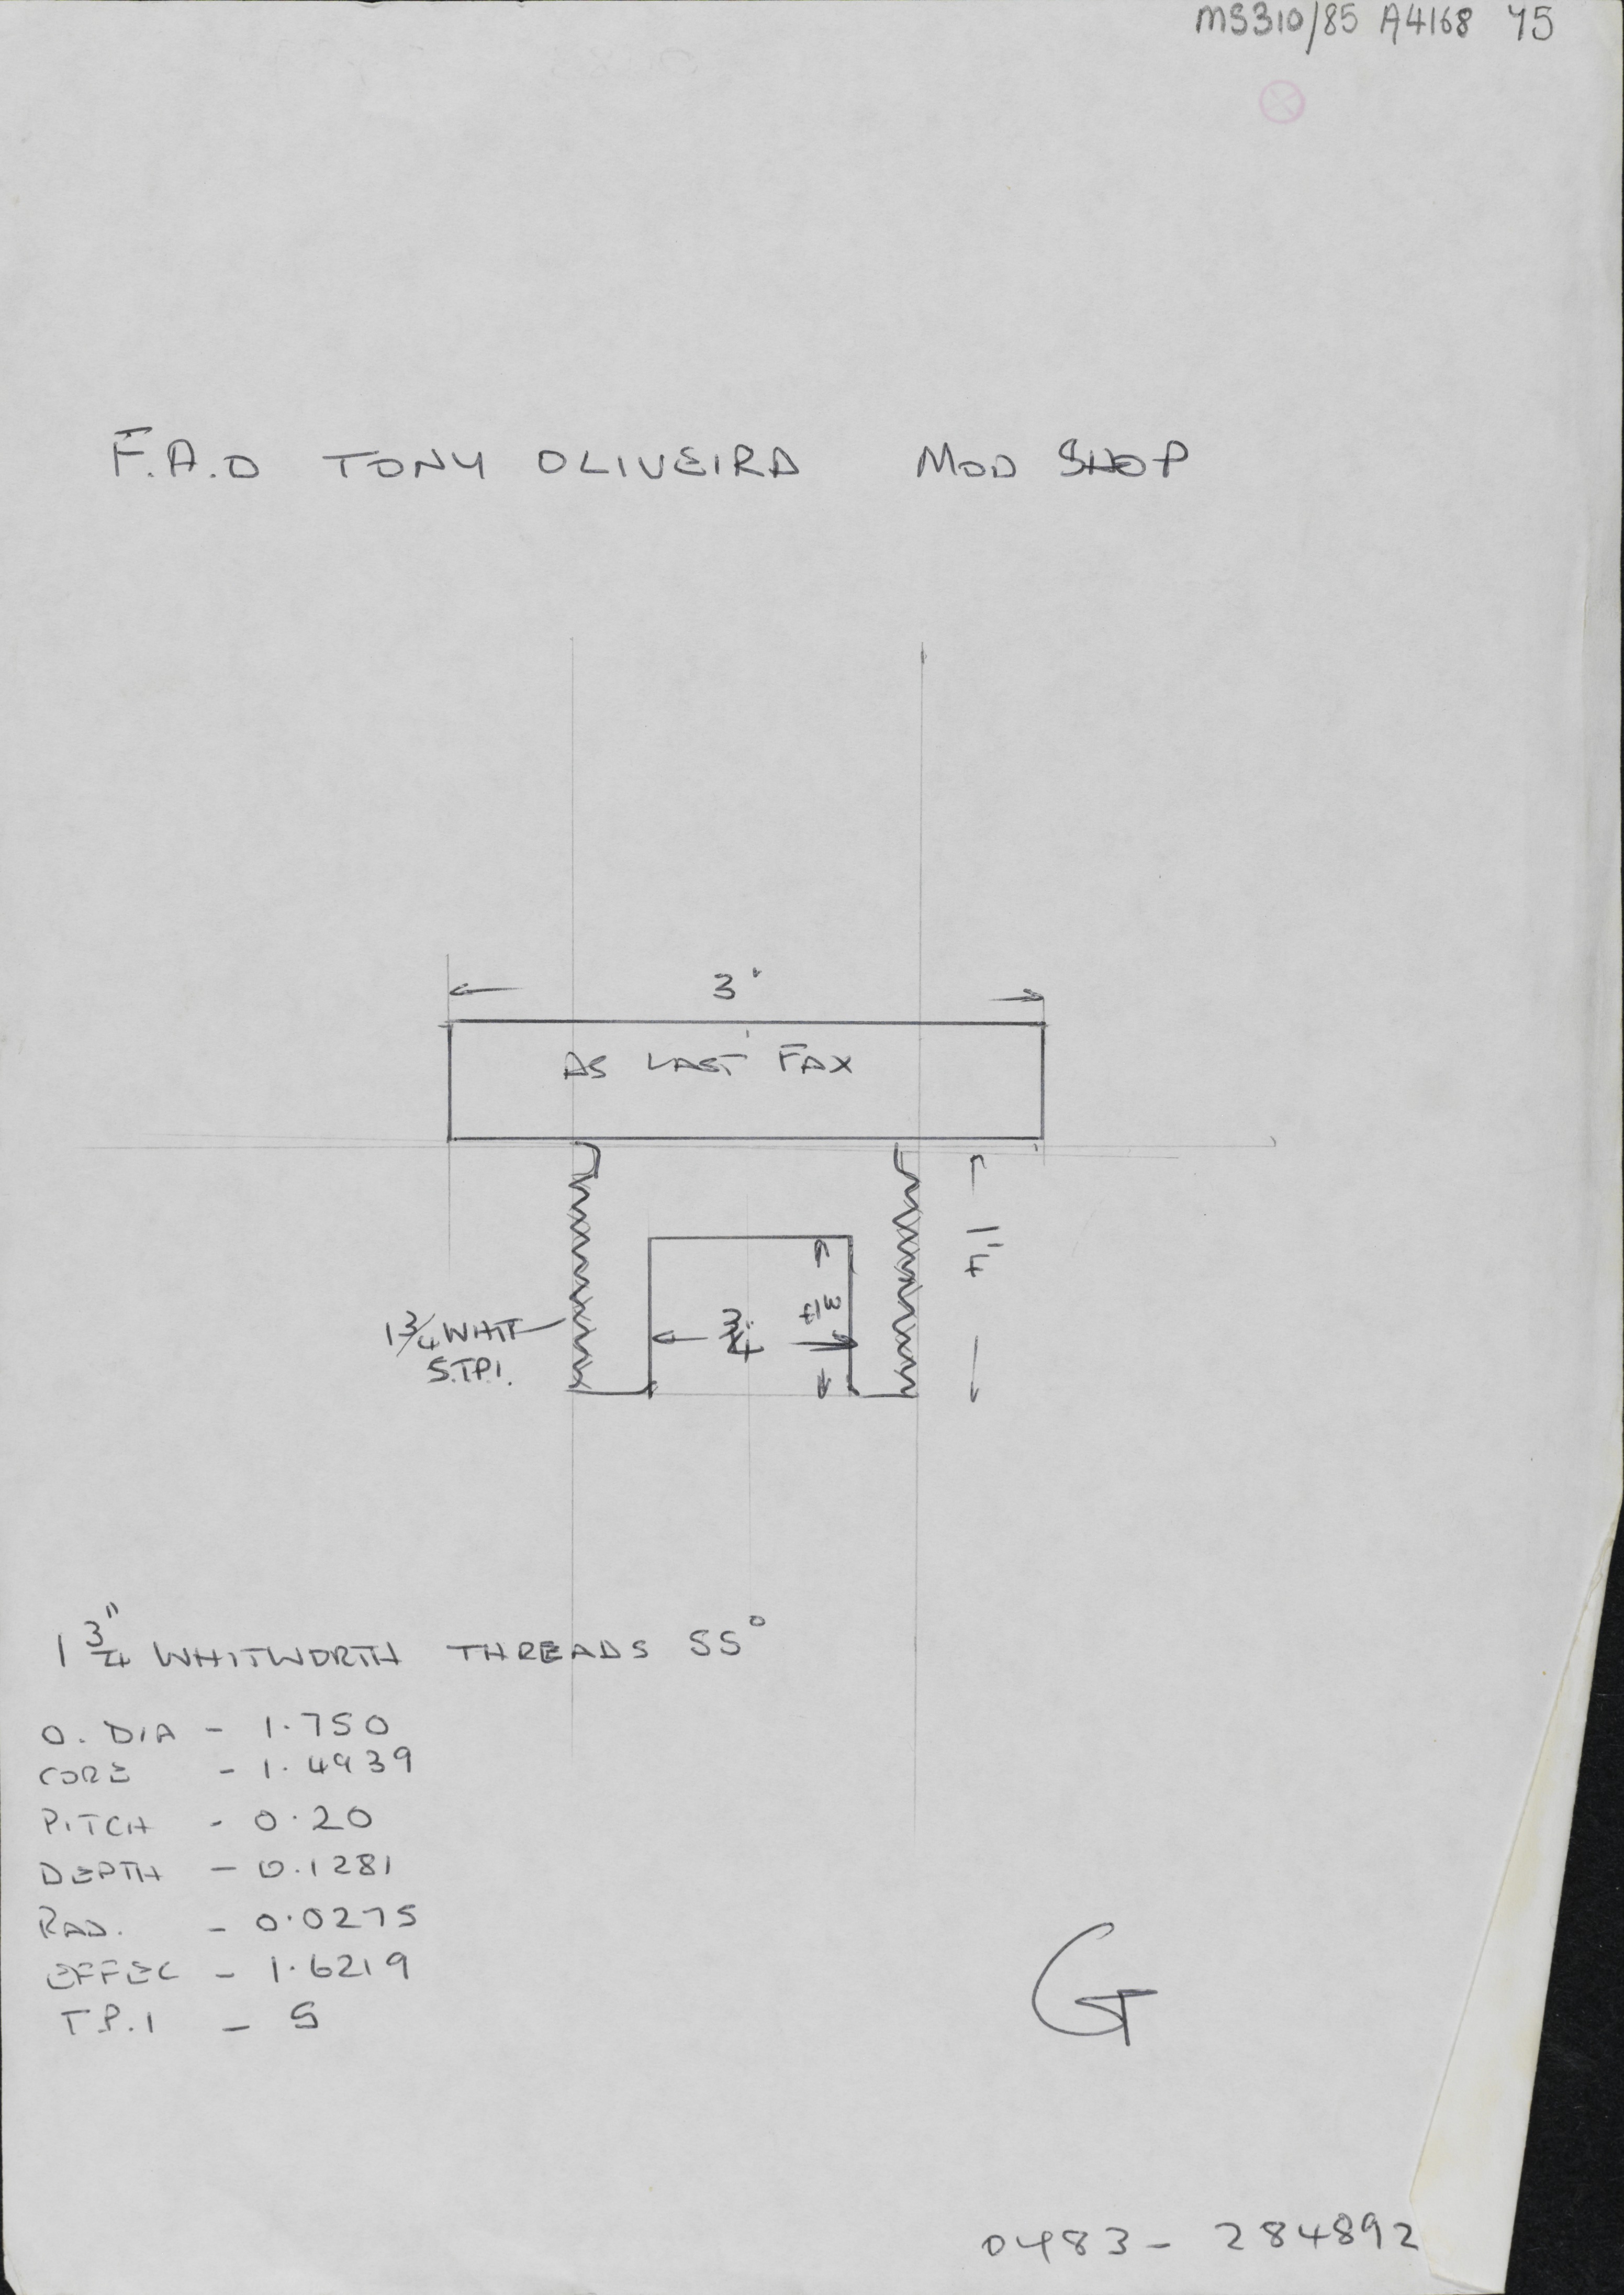 MS310/85 A4168 45
F.A.O TONY OLIVEIRA MOD SHOP
3"
AS LAST FAX
1 1/4"
3/4
3/4"
1 3/4 WHIT
5.T.P.I.
1 3/4" WHITWORTH THREADS 55°
O. DIA - 1.750
CORE - 1.4939
PITCH - 0.20
DEPTH - 0.1281
RAD. - 0.0275
EFFEC - 1.6219
T.P.I - 5
G
0483- 284892